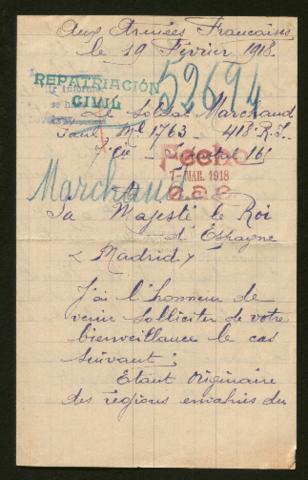 Aux Armées Francaises
le 19 Février 1918.
REPATRIACIÓN
CIVIL
52694
Le Soldat Marchand
Ml 1763 - 418 R.I.
7 Cie
161
Fecho
7-MAR. 1918
Marchand
A
Sa Majesté le Roi
d'Espagne
(Madrid)
J'ai l'honneur de
venir solliciter de votre
bienveillance le cas
suivant ;
Etant Originaire
des régions envahies du